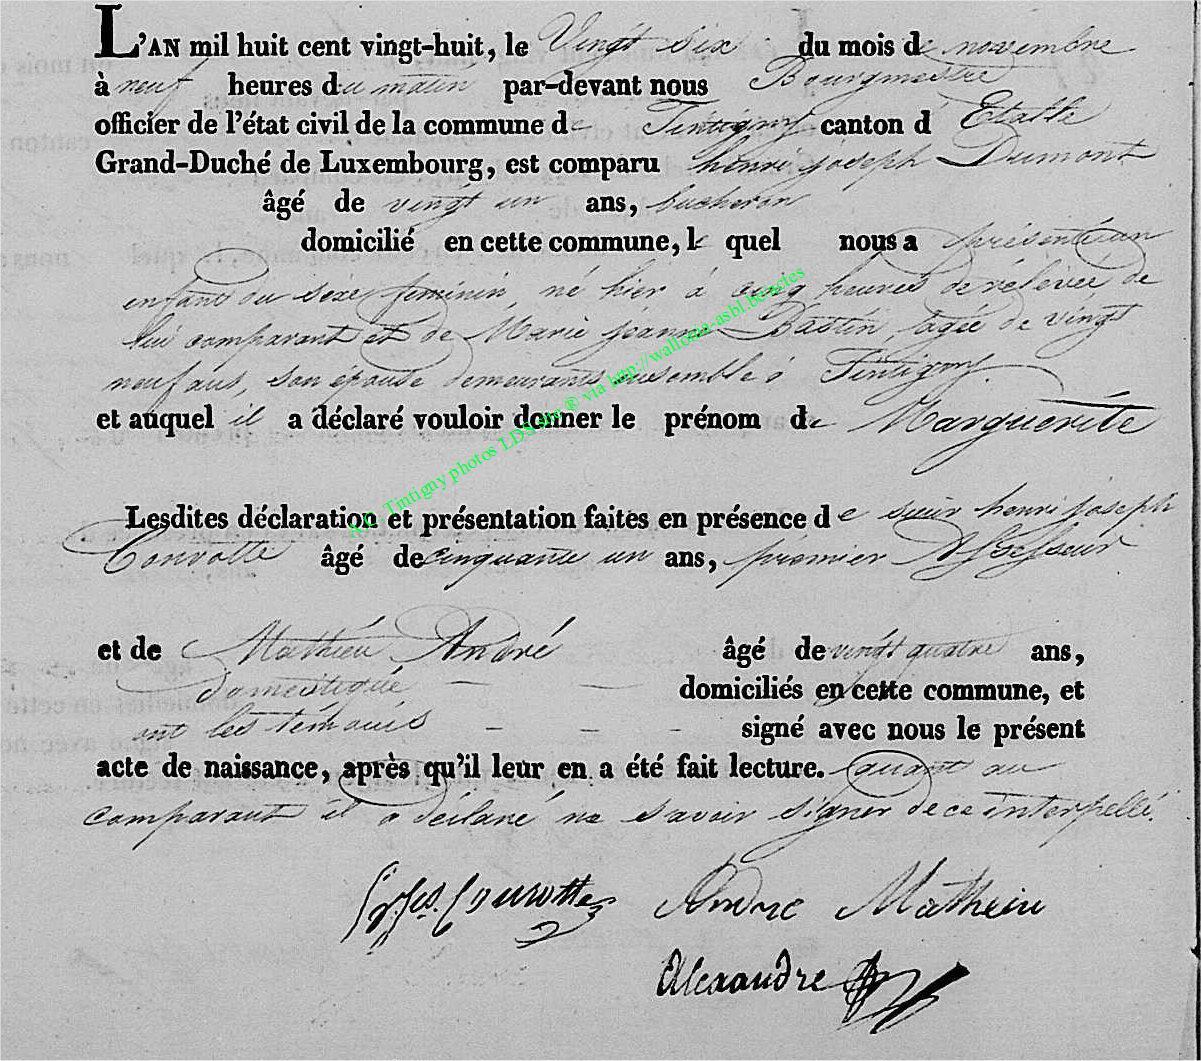 L'AN mil huit cent vingt-huit, le Vingt six du mois de novembre
à neuf heures du matin par-devant nous Bourgmestre
officier de l'état civil de la commune de Tintigny canton d' Etalle
Grand-Duché de Luxembourg, est comparu henri joseph Dumont
âgé de vingt un ans, bucheron
domicilié en cette commune, le quel nous a présenté un
enfant du sexe feminin né hier à cinq heures de rélévée de
lui comparant et de Marie jeanne Bastin, agée de vingt
neuf ans, son épouse demeurants ensemble à Tintigny
et auquel il a déclaré vouloir donner le prénom de Marguerite
A.C. Tintigny photos LDS site ® via http://wallonia-asbl.be/actes
Lesdites déclaration et présentation faites en présence de sieur henri joseph
Courotte âgé de cinquante un ans, premier Assesseur
et de Mathieu André âgé de vingt quatre ans,
domestique domiciliés en cette commune, et
ont les témoins signé avec nous le présent
acte de naissance, après qu'il leur en a été fait lecture. quant au
comparant il a déclaré ne savoir signer de ce interpellé.
Courotte André Mathieu
Alexandre